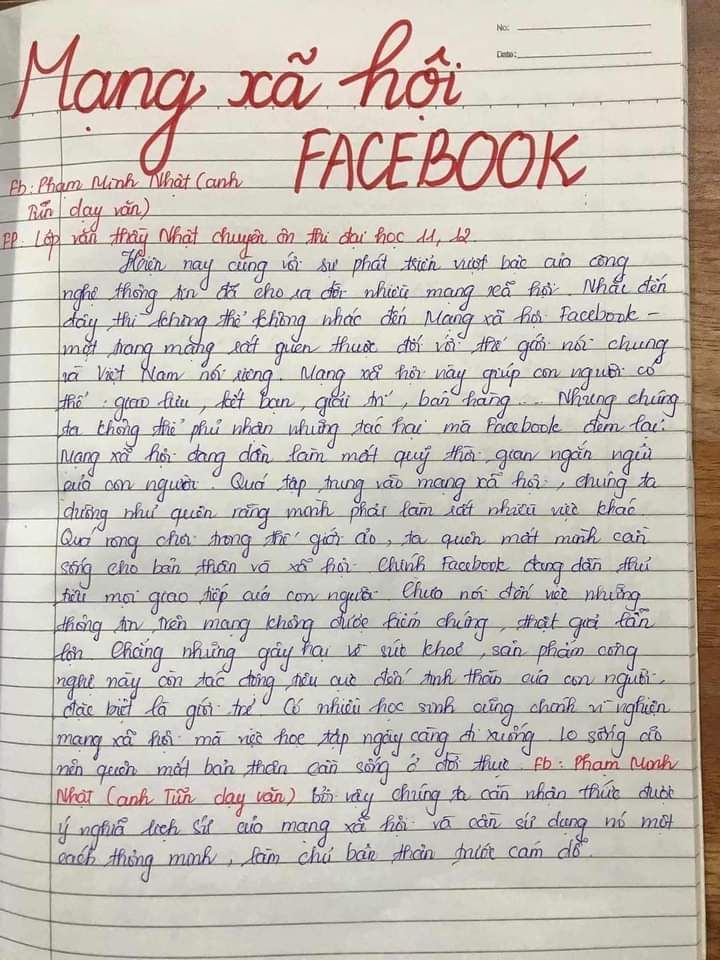 No:
Date:
Mạng xã hội
FACEBOOK
Fb: Phạm Minh Nhật (anh
Tuễn dạy văn)
PP. Lớp văn thầy Nhật chuyên ôn thi đại học 11, 12.
Hiện nay cùng với sự phát triển vượt bậc của công
nghệ thông tin đã cho ra đời nhiều mạng xã hội. Nhắc đến
đây thì không thể không nhắc đến Mạng xã hội Facebook –
một trang mạng rất quen thuộc đối với thế giới nói chung
và Việt Nam nói riêng. Mạng xã hội này giúp con người có
thể: giao lưu, kết bạn, giải trí, bán hàng... Nhưng chúng
ta không thể phủ nhận những tác hại mà Facebook đem lại.
Mạng xã hội đang dần làm mất quỹ thời gian ngắn ngủi
của con người. Quá tập trung vào mạng xã hội, chúng ta
dường như quên rằng mình phải làm rất nhiều việc khác
Quá rong chơi trong thế giới ảo, ta quên mất mình cần
sống cho bản thân và xã hội. Chính Facebook đang dần thủ
tiêu mọi giao tiếp của con người. Chưa nói đến việc những
thông tin trên mạng không được kiểm chứng, thật giả lẫn
lộn. Chẳng những gây hại về sức khoẻ, sản phẩm công
nghệ này còn tác động tiêu cực đến tinh thần của con người,
đặc biệt là giới trẻ. Có nhiều học sinh cũng chính vì nghiện
mạng xã hội mà việc học tập ngày càng đi xuống. lo sống ảo
nên quên mất bản thân cần sống ở đời thực. Fb: Phạm Minh
Nhật (anh Tuễn dạy văn) bởi vậy chúng ta cần nhận thức được
ý nghĩa lịch sử của mạng xã hội và cần sử dụng nó một
cách thông minh, làm chủ bản thân trước cám dỗ.